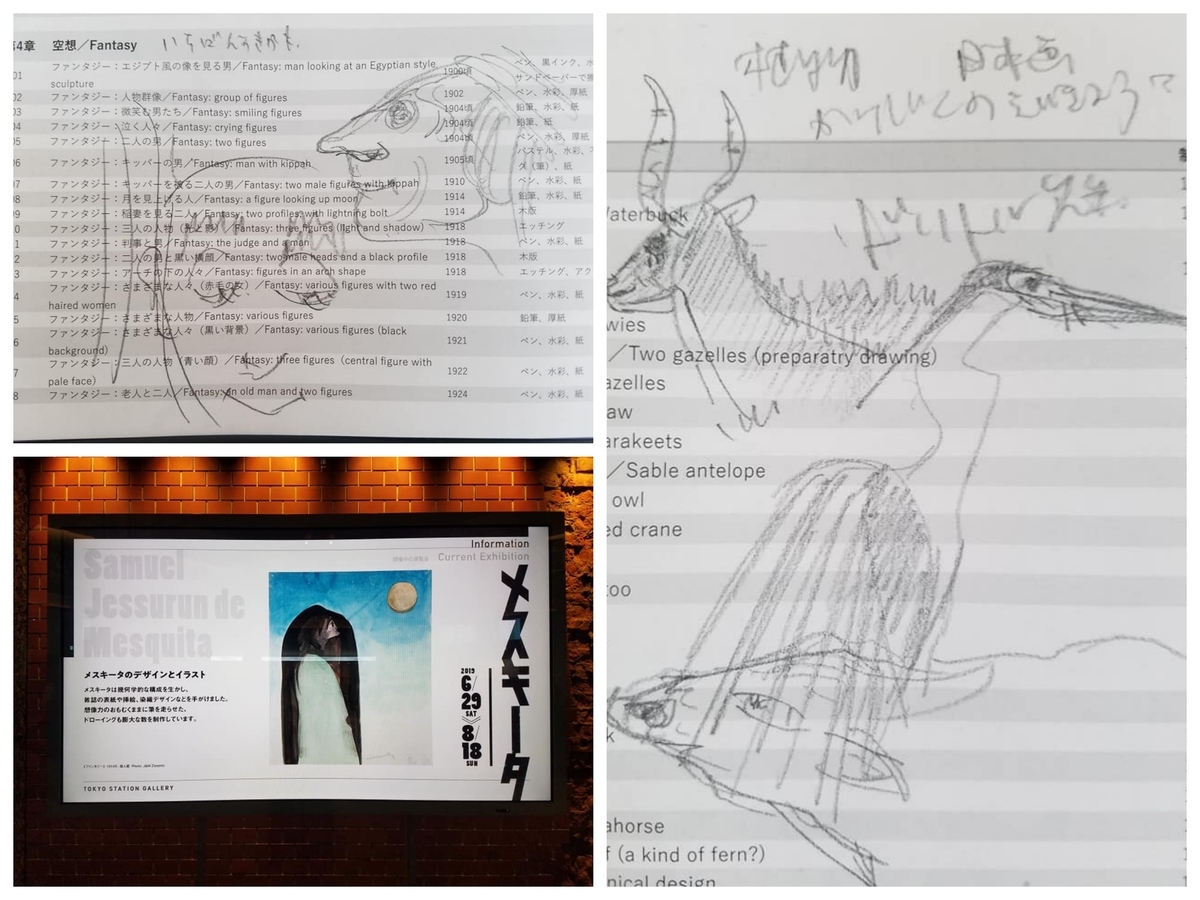 第4章 空想／Fantasy いちばんすきかも。
01 ファンタジー：エジプト風の像を見る男／Fantasy: man looking at an Egyptian style sculpture 1900頃 ペン、黒インク、水
サンドペーパーで擦
02 ファンタジー：人物群像／Fantasy: group of figures 1902 ペン、水彩、厚紙
03 ファンタジー：微笑む男たち／Fantasy: smiling figures 1904頃 鉛筆、水彩、紙
04 ファンタジー：泣く人々／Fantasy: crying figures 1904頃 鉛筆、紙
05 ファンタジー：二人の男／Fantasy: two figures 1904頃 ペン、水彩、厚
06 ファンタジー：キッパーの男／Fantasy: man with kippah 1905頃 パステル、水彩、
ダ（筆）、紙
07 ファンタジー：キッパーを被る二人の男／Fantasy: two male figures with kippah 1910 ペン、水彩、紙
08 ファンタジー：月を見上げる人／Fantasy: a figure looking up moon 1914 鉛筆、水彩、紙
09 ファンタジー：稲妻を見る二人／Fantasy: two profiles, with lightning bolt 1914 木版
0 ファンタジー：三人の人物（光と影）／Fantasy: three figures (light and shadow) 1918 エッチング
1 ファンタジー：判事と男／Fantasy: the judge and a man 1918 ペン、水彩、紙
2 ファンタジー：二人の男と黒い横顔／Fantasy: two male heads and a black profile 1918 木版
3 ファンタジー：アーチの下の人々／Fantasy: figures in an arch shape 1918 エッチング、アク
4 ファンタジー：さまざまな人々（赤毛の女）／Fantasy: various figures with two red haired women 1919 ペン、水彩、紙
5 ファンタジー：さまざまな人物／Fantasy: various figures 1920 鉛筆、厚紙
6 ファンタジー：さまざまな人々（黒い背景）／Fantasy: various figures (black background) 1921 ペン、水彩、紙
7 ファンタジー：三人の人物（青い顔）／Fantasy: three figures (central figure with pale face) 1922 ペン、水彩、紙
8 ファンタジー：老人と二人／Fantasy: an old man and two figures 1924 ペン、水彩、紙
Information
Current Exhibition
開催中の展覧会
Samuel
Jessurun de
Mesquita
メスキータ
メスキータのデザインとイラスト
メスキータは幾何学的な構成を生かし、
雑誌の表紙や挿絵、染織デザインなどを手がけました。
想像力のおもむくままに筆を走らせた、
ドローイングも膨大な数を制作しています。
2019
6/29
SAT
8/18
SUN
TOKYO STATION GALLERY
日本画
Waterbuck
wies
／Two gazelles (preparatry drawing)
azelles
aw
arakeets
／Sable antelope
owl
ed crane
too
k
ahorse
f (a kind of fern?)
nical design